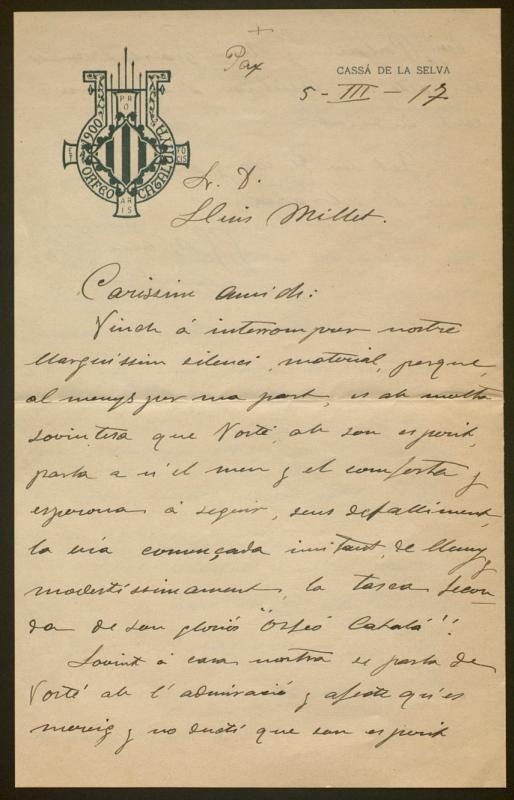 Pax
CASSÁ DE LA SELVA
5-III-17
PRO
1900
ORFEO
CATALUNYA
ARIS
Sr. D.
Lluis Millet.
Carissim amich:
Vinch á interrompre nostre
llarguissim silenci, material, perque,
al menys per ma part, es ab molta
sovintesa que Vosté, ab son esperit,
parla a n'el meu y el conforta y
esperona á seguir, sens defalliment,
la via comensada imitant, de lluny y
modestissimament, la tasca fecon-
da de son gloriós "Orfeó Catalá".
Sovint á casa nostra se parla de
Vosté ab l'admiració y afecte qu'es
mereix y no dupti que son esperit